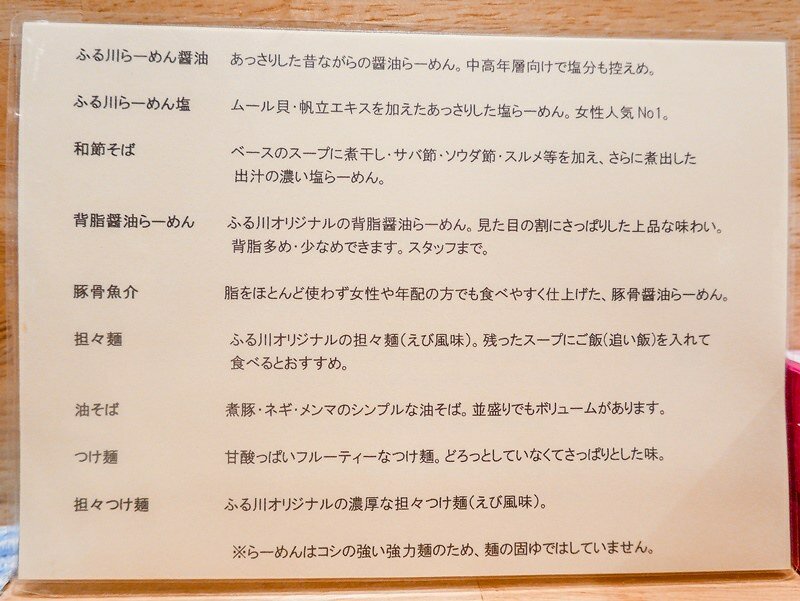 ふる川らーめん醤油 あっさりした昔ながらの醤油らーめん。中高年層向けで塩分も控えめ。
ふる川らーめん塩 ムール貝・帆立エキスを加えたあっさりした塩らーめん。女性人気No1。
和節そば ベースのスープに煮干し・サバ節・ソウダ節・スルメ等を加え、さらに煮出した
出汁の濃い塩らーめん。
背脂醤油らーめん ふる川オリジナルの背脂醤油らーめん。見た目の割にさっぱりした上品な味わい。
背脂多め・少なめできます。スタッフまで。
豚骨魚介 脂をほとんど使わず女性や年配の方でも食べやすく仕上げた、豚骨醤油らーめん。
担々麺 ふる川オリジナルの担々麺(えび風味)。残ったスープにご飯(追い飯)を入れて
食べるとおすすめ。
油そば 煮豚・ネギ・メンマのシンプルな油そば。並盛りでもボリュームがあります。
つけ麺 甘酸っぱいフルーティーなつけ麺。どろっとしていなくてさっぱりとした味。
担々つけ麺 ふる川オリジナルの濃厚な担々つけ麺(えび風味)。
※らーめんはコシの強い強力麺のため、麺の固ゆではしていません。